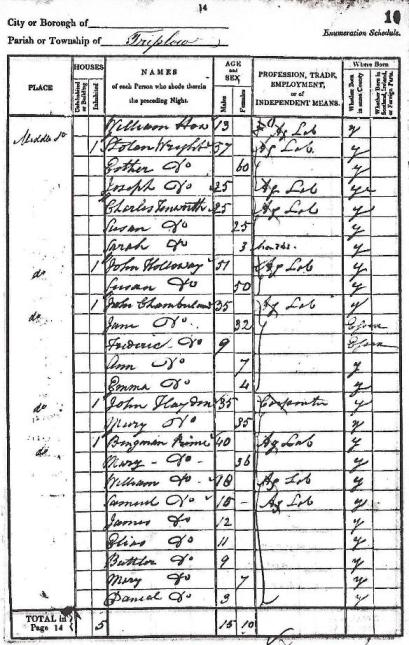 14
City or Borough of
10
Enumeration Schedule.
Parish or Township of Triplow
PLACE
HOUSES
Uninhabited or Building
Inhabited
NAMES
of each Person who abode therein
the preceding Night.
AGE
and
SEX
Males
Females
PROFESSION, TRADE,
EMPLOYMENT,
or of
INDEPENDENT MEANS.
Where Born
Whether Born in same County
Whether Born in Scotland, Ireland, or Foreign Parts.
William 13 Ag Lab y
Middle St 1 Wright 57 Ag Lab y
Esther Do 60 y
Joseph Do 25 Ag Lab y
Charles 25 Ag Lab y
Susan Do 25 y
Sarah Do 3 months y
do 1 John Holloway 51 Ag Lab y
Susan Do 50 y
do 1 John Chamberlain 35 Ag Lab y
Jane Do 32
Frederic Do 9
Ann Do 7 y
Emma Do 4 y
do 1 John Haydon 35 y
Mary Do 35 y
do 1 Prime 40 Ag Lab y
Mary Do 36 y
William Do 18 Ag Lab y
Samuel Do 15 Ag Lab y
James Do 12 y
Elias Do 11 y
Do 9 y
Mary Do 7 y
Daniel Do 3 y
TOTAL in
Page 14 5 15 10